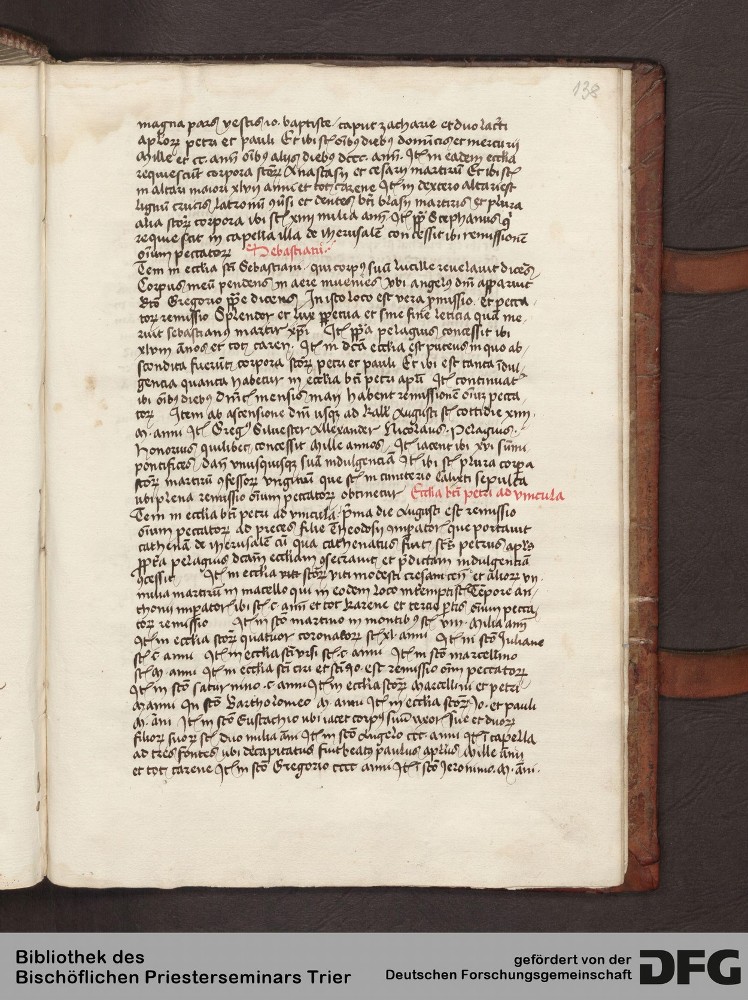 138
magna pars vestis io. baptiste caput zacharie et duo
aplorum petri et pauli Et ibi st oibus diebus dominicis et mercurii
Mille et cc. anni oibus aliis diebus dccc. anni. Itm in eadem ecclia
requiescunt corpora storum Anastasii et cesarii martirum Et ibi st
in altari maiori xlviii anni et tot carene Itm in dextero altari est
lignum crucis latronum et dentes bti blasii martiris et plura
alia storum corpora ibi st xiiii milia anni Itm pp Stephanus qui
requiescit in capella illa de iherusalem concessit ibi remissionem
oium peccatorum Sebastiani
Item in ecclia sti Sebastiani. qui corpus suum lucille revelavit dicens
Corpus meum pendens in aere invenies Ubi angelus dni apparuit
bto Gregorio ppe dicens In isto loco est vera pmissio. et pecca-
torum remissio Splendor et lux ppetua et sine fine leticia quam me-
ruit sebastianus martir xpi Itm ppa pelagius concessit ibi
xlviii annos et tot caren. Itm in dca ecclia est puteus in quo ab-
scondita fuerunt corpora storum petri et pauli Et ibi est tanta indul-
gencia quanta habetur in ecclia bti petri apli Itm continuatur
ibi oibus diebus dnicis mensis maii habent remissionem oium pecca-
torum Item ab ascensione dni usque ad kall Augusti st cottidie xiiii.
M. anni Itm Gregorius Silvester Allexander Nicolaus. Pelagius.
Honorius quilibet concessit Mille annos Itm iacent ibi xvi summi
pontifices dans unusquisque suam indulgenciam Itm ibi st plura corpora
storum martirum confessorum virginum que st in cimiterio calixti sepulta
ubi plena remissio oium peccatorum obtinetur Ecclia bti petri ad vincula
Item in ecclia bti petri ad vincula. prima die Augusti est remissio
oium peccatorum ad preces filie Theodosii impatoris que portavit
cathenam de iherusalem cum qua cathenatus fuit sts petrus apls
ppa pelagius dcam eccliam consecravit et pdictam indulgentiam
concessit Itm in ecclia viti storum viti modesti cresentii et aliorum vii
milia martirum in macello qui in eodem loco interempti st Tempore an-
thonii impatoris ibi st c anni et tot karene et tercia ptis oium pecca-
torum remissio Itm in sto martino in montibus st viii Milia anni
Itm in ecclia storum quatuor coronatorum st xl anni Itm in sto Juliane
st c anni Itm in ecclia sti st c anni Itm in sto marcellino
st M anni Itm in ecclia sti ciri et sti io. est remissio oium peccatorum
Itm in sto saturnino c anni Itm in ecclia storum Marcellini et petri
M anni In sto Bartholomeo M anni Itm in ecclia storum Jo. et pauli
M. ani Itm in sto Eustachio ubi iacet corpus suum uxoris sue et duorum
filiorum suorum st duo milia anni Itm in sto Angelo ccc anni Itm in capella
ad tres fontes ubi decapitatus fuit beatus paulus aplus Mille anni
et tot carene Itm in sto Gregorio cccc anni Itm in sto Jeronimo. M. ani.
Bibliothek des
Bischöflichen Priesterseminars Trier
gefördert von der
Deutschen Forschungsgemeinschaft
DFG